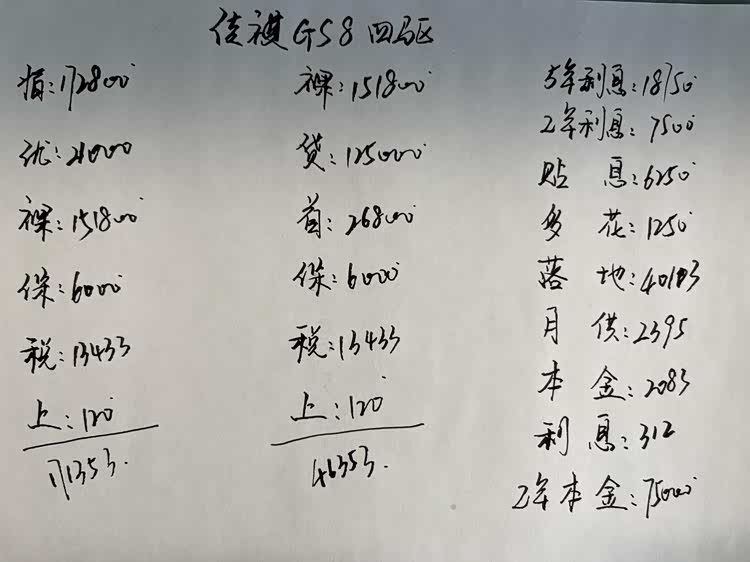 佳祺GS8四驱
指:172800
优:21000
裸:151800
保:6000
税:13433
上:120
171353.
裸:151800
贷:125000
首:26800
保:6000
税:13433
上:120
46353.
5年利息:18750
2年利息:7500
贴息:6250
多花:1250
落地:40103
月供:2395
本金:2083
利息:312
2年本金:75000